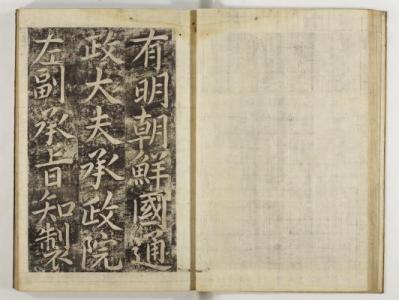 有明朝鮮國通
政大夫承政院
左副承旨知製